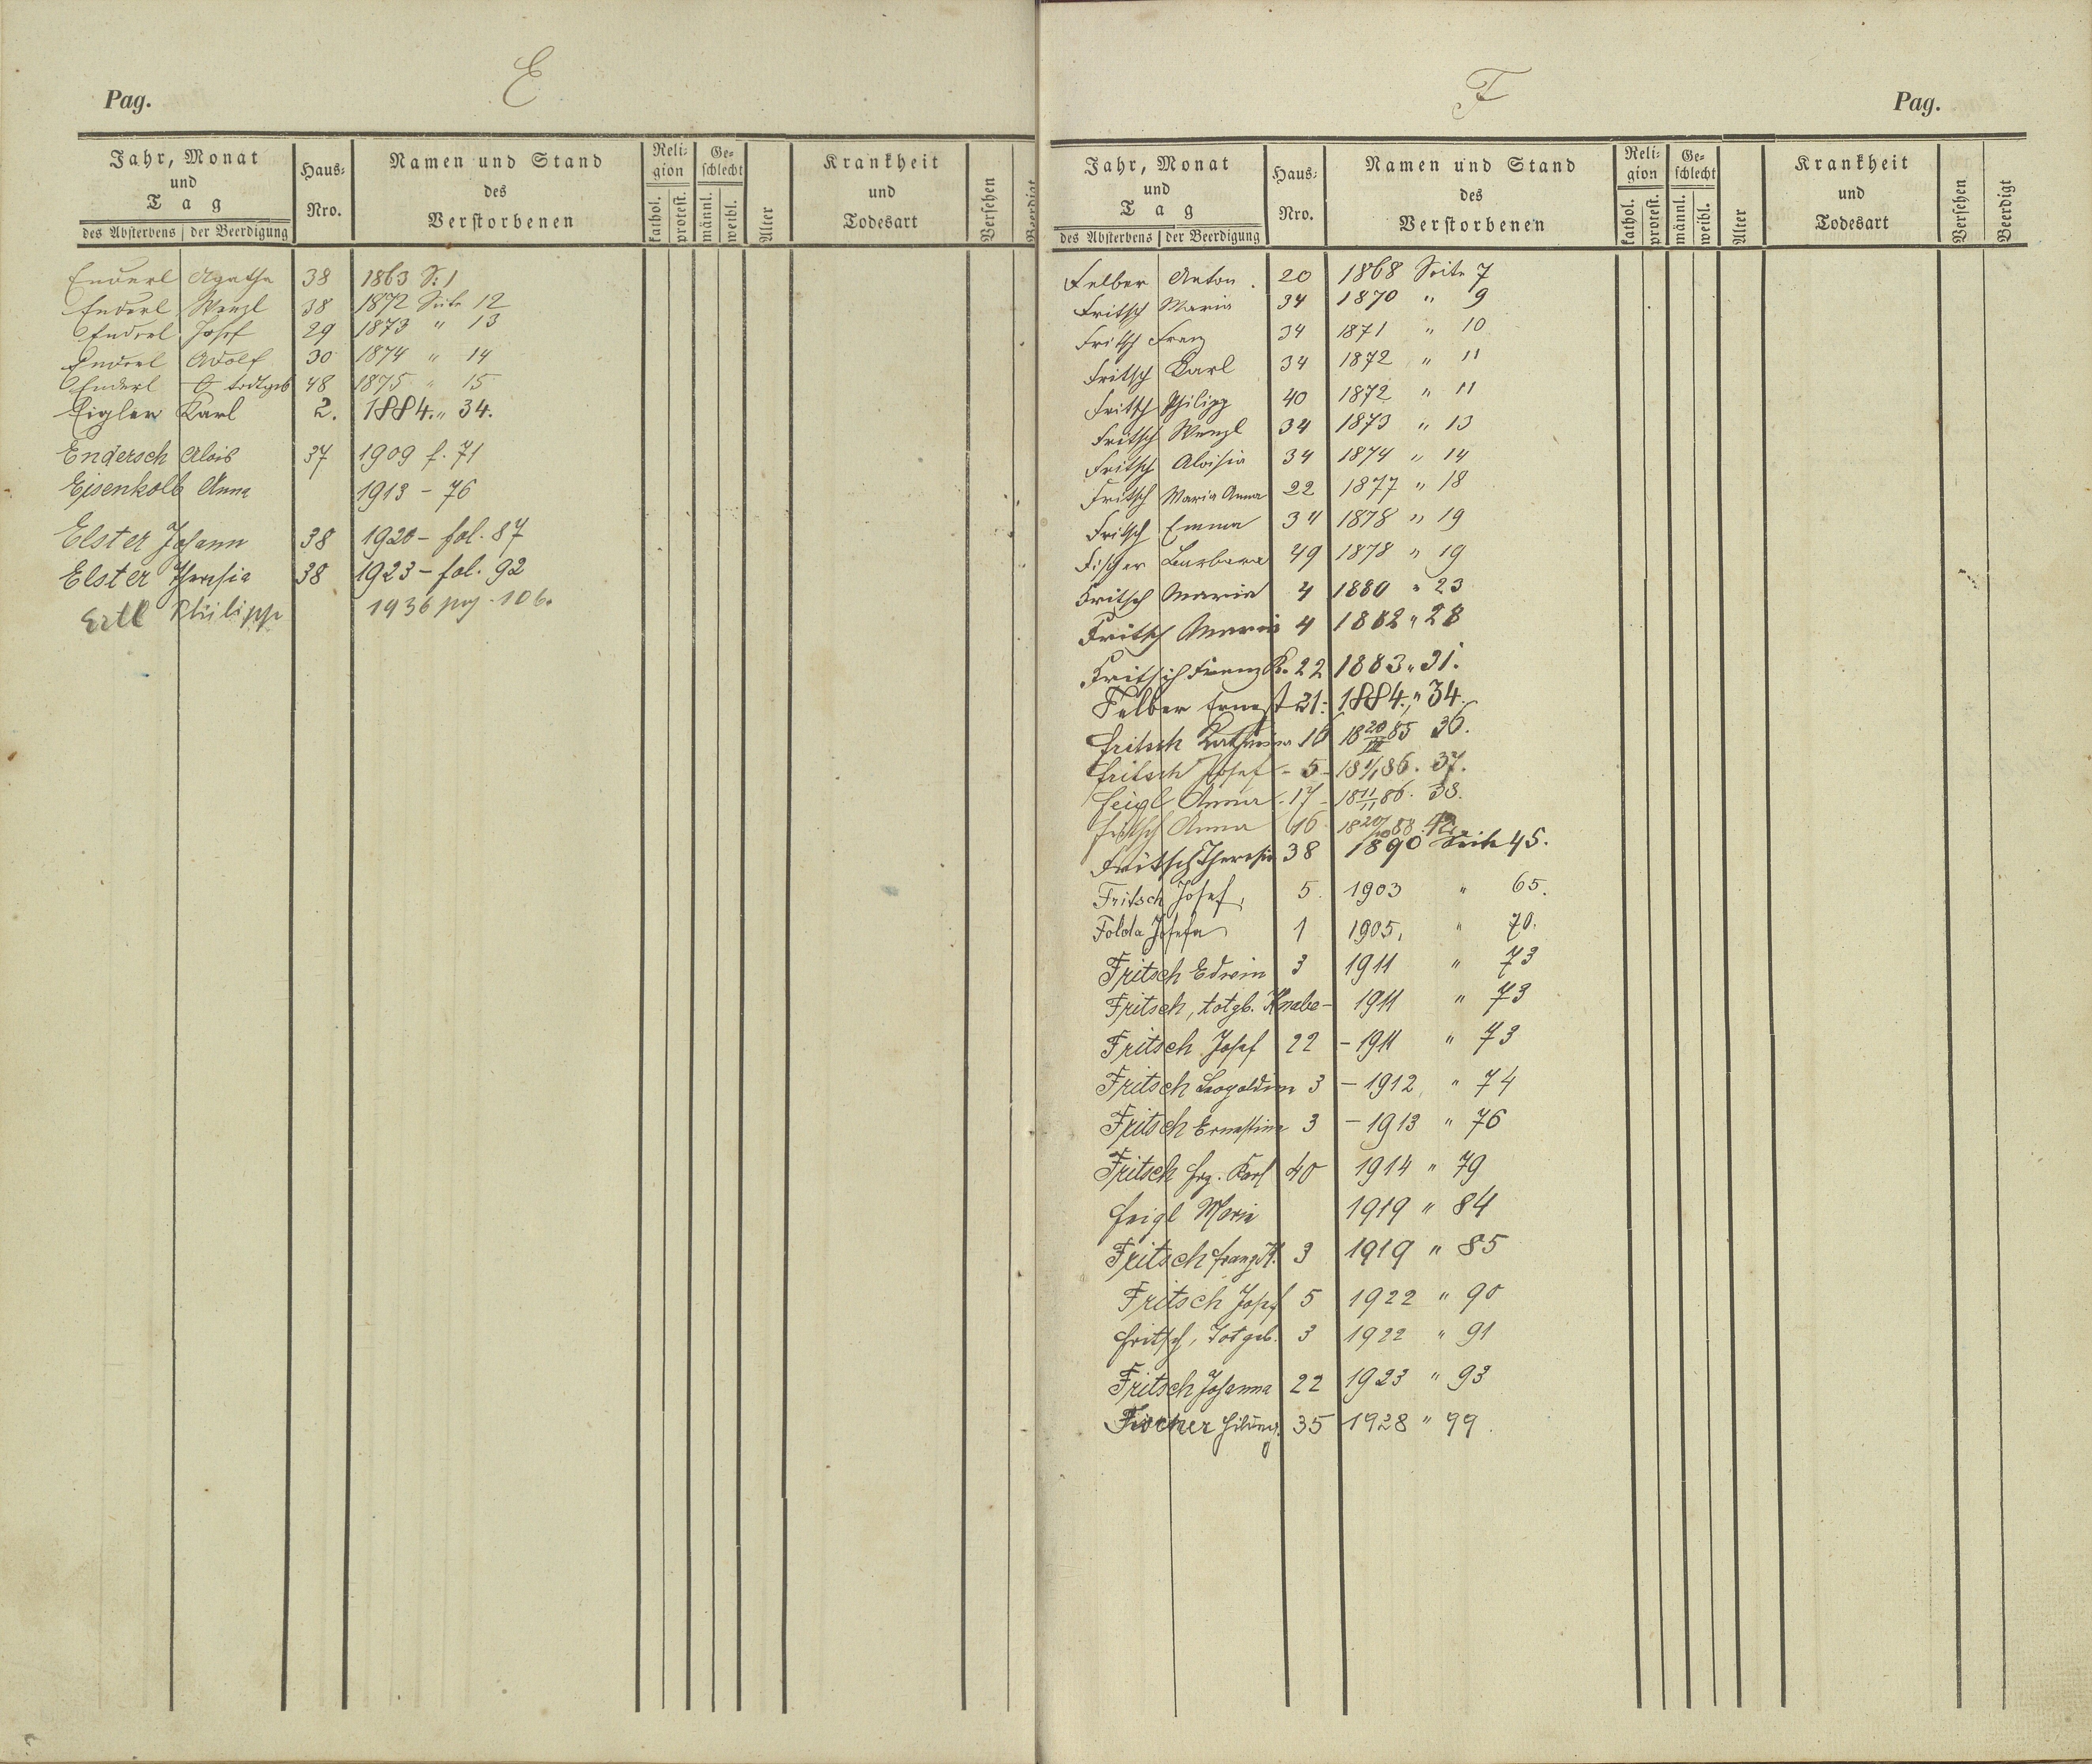 E
Pag.
Jahr, Monat und Tag
des Absterbens | der Beerdigung
Haus-Nro.
Namen und Stand des Verstorbenen
Religion
kathol. protest.
Geschlecht
männl. weibl.
Alter
Krankheit und Todesart
Versehen
Beerdigt
Enderl Agatha 38 1863 S. 1
Enderl Wenzl 38 1872 Seite 12
Enderl Josef 29 1873 " 13
Enderl Adolf 30 1874 " 14
Enderl todtgeb 48 1875 " 15
Eigler Karl 2. 1884. " 34.
Endersch Alois 37 1909 f. 71
Eisenkolb Anna 1913 - 76
Elster Johann 38 1920 - fol. 87
Elster Theresia 38 1923 - fol. 92
Ertl Philipp 1936 pag. 106.
F
Pag.
Jahr, Monat und Tag
des Absterbens | der Beerdigung
Haus-Nro.
Namen und Stand des Verstorbenen
Religion
kathol. protest.
Geschlecht
männl. weibl.
Alter
Krankheit und Todesart
Versehen
Beerdigt
Felber Anton. 20 1868 Seite 7
Fritsch Maria 34 1870 " 9
Fritsch Franz 34 1871 " 10
Fritsch Karl 34 1872 " 11
Fritsch Philipp 40 1872 " 11
Fritsch Wenzl 34 1873 " 13
Fritsch Aloisia 34 1874 " 14
Fritsch Maria Anna 22 1877 " 18
Fritsch Emma 34 1878 " 19
Fischer Barbara 49 1878 " 19
Fritsch Maria 4 1880 " 23
Fritsch Maria 4 1882 " 28
Fritsch Franz K. 22 1883 " 31.
Felber Ernest 21. 1884. " 34.
Fritsch Katharina 16 18 20/III 85 36.
Fritsch Josef - 5 - 18 1/1 86. 37.
Feigl Anna - 17 - 18 11/11 86. 38.
Fritsch Anna 16 18 20/10 88. 42.
Fritsch Theresia 38 1890 Seite 45.
Fritsch Josef, 5. 1903 " 65.
Folda Josefa 1 1905, " 70.
Fritsch Edwin 3 1911 " 73
Fritsch, totgb. Knabe - 1911 " 73
Fritsch Josef 22 - 1911 " 73
Fritsch Leopoldine 3 - 1912, " 74
Fritsch Ernestine 3 - 1913 " 76
Fritsch Frz. Karl 40 1914 " 79
Feigl Marie 1919 " 84
Fritsch Franz K. 3 1919 " 85
Fritsch Josef 5 1922 " 90
Fritsch, Totgeb. 3 1922 " 91
Fritsch Johanna 22 1923 " 93
Fischer 35 1928 " 99.